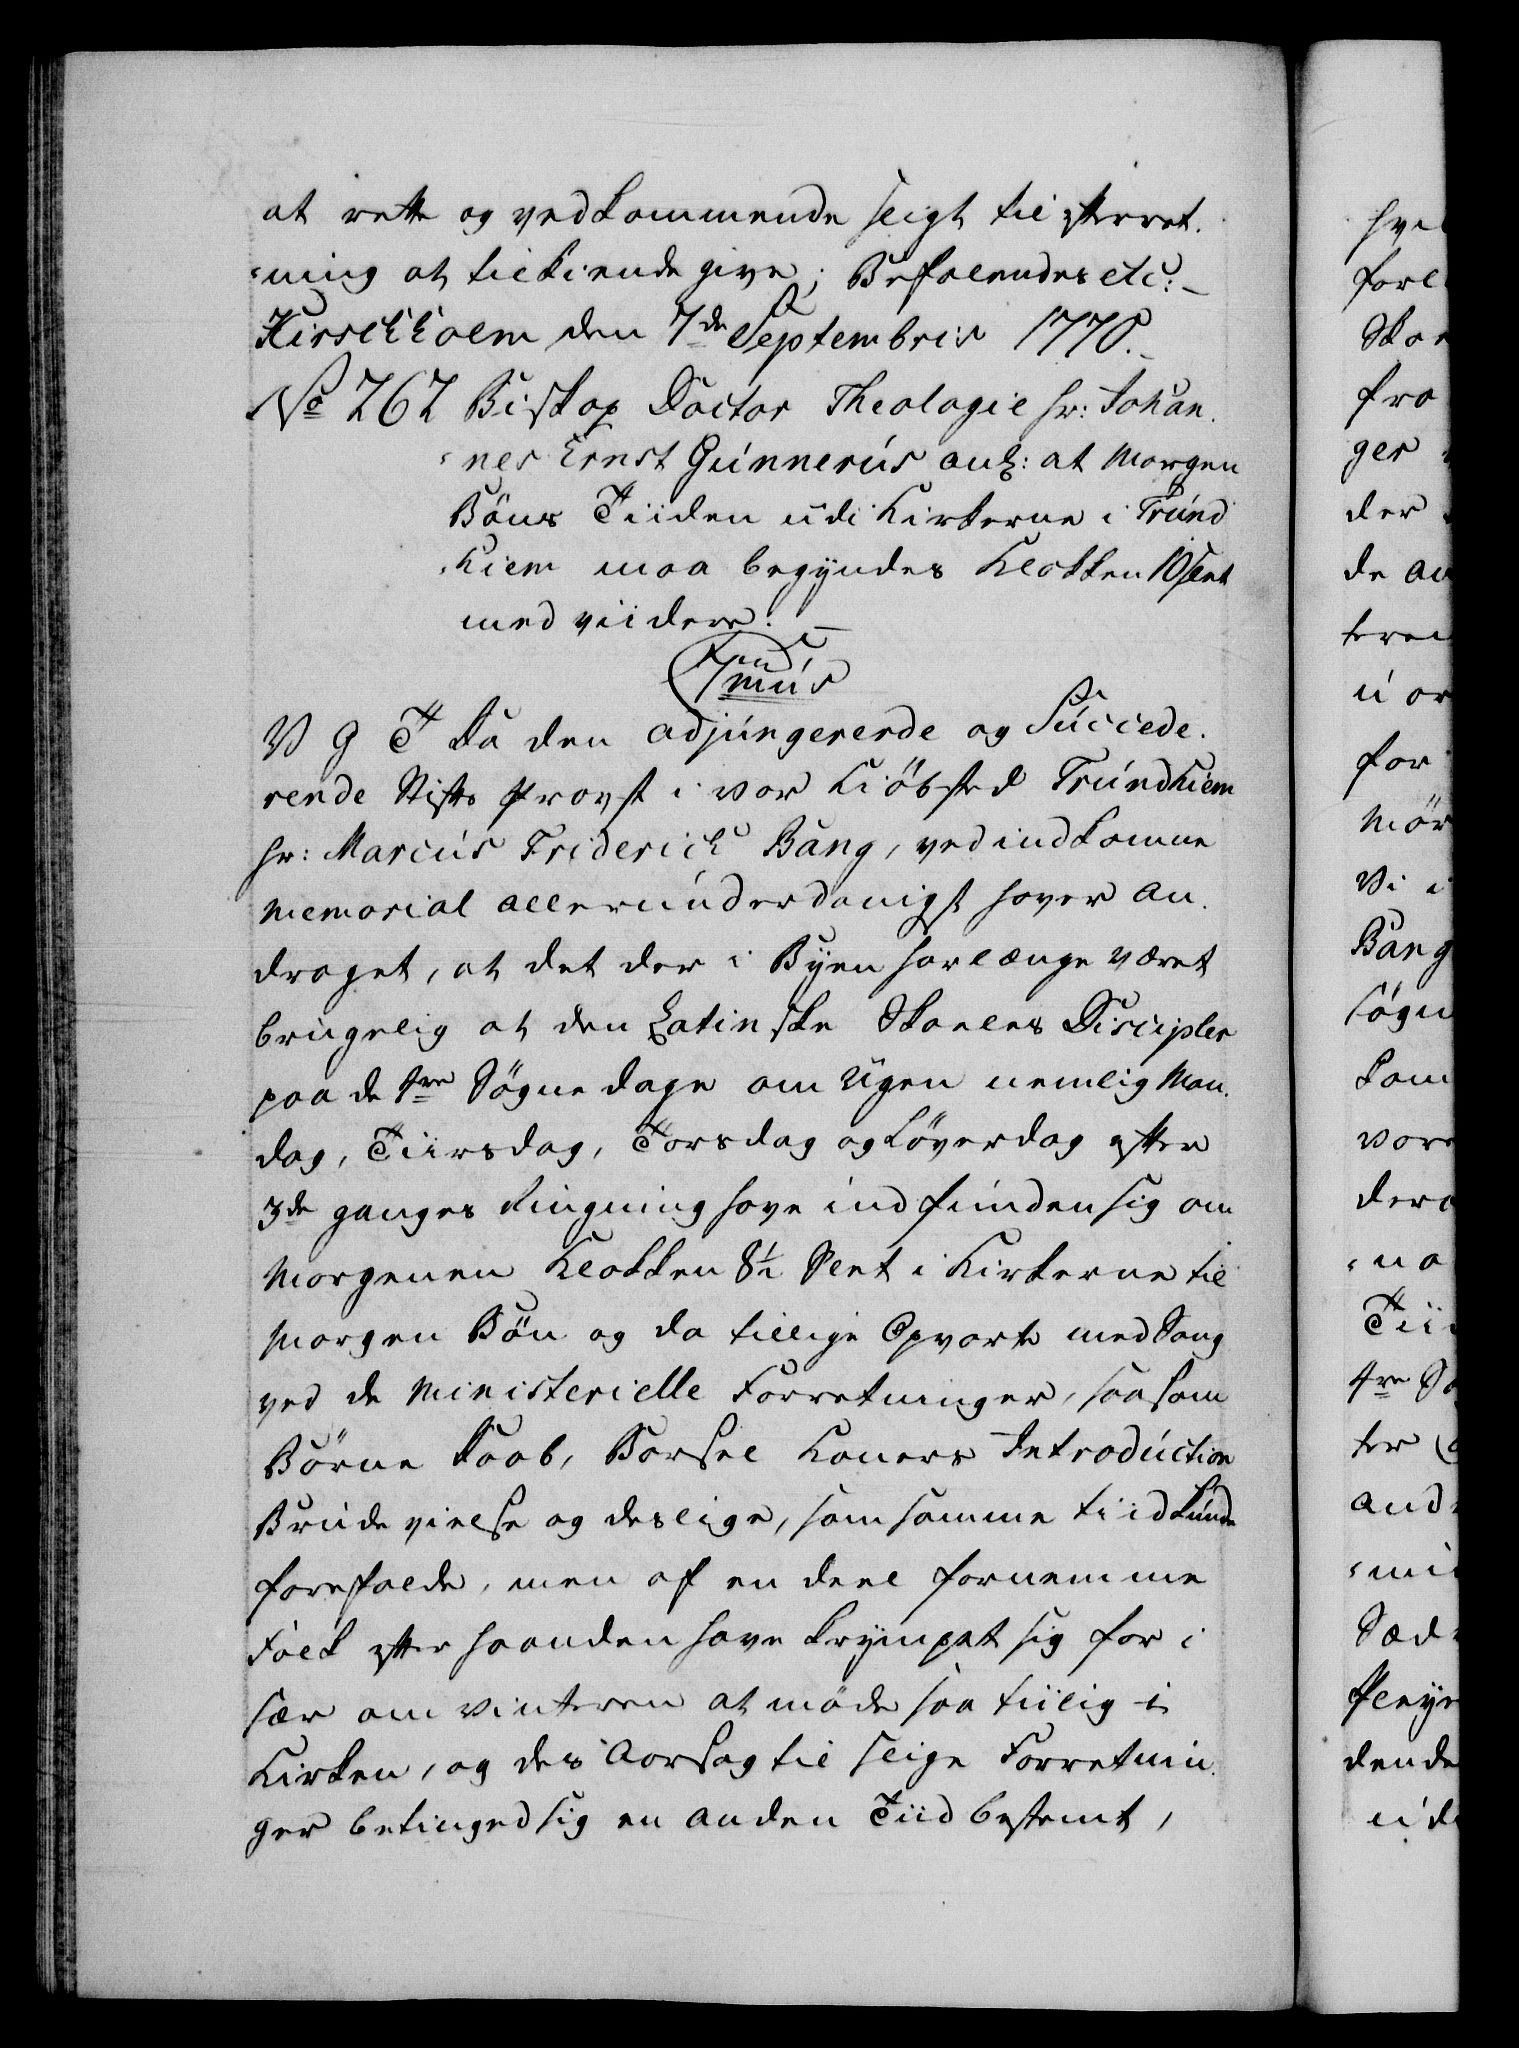 at rette og vedkommende sligt til efterret-
ning at tilkiende give; Befalendes etc:
Hirschholm den 7de Septembris 1770.
No 262 Biskop Doctor Theologie hr: Johan-
nes Ernst Gunnerus anl: at Morgen
Bøns Tiiden udi Kirkerne i Trund
hiem maa begyndes Klokken 10 slet
med viidere.
C 7mus
V G T Da den adjungerende og Succede-
rende Stifts Provst i vor Kiöbsted Trundhiem
hr: Marcus Friderich Bang, ved indkomne
Memorial allerunderdanigst haver an-
draget, at det der i Byen har længe været
brugelig at den Latinske Skoeles Discipler
paa de 4re Søgne dage om Ugen nemlig Man-
dag, Tiirsdag, Torsdag og Løverdag efter
3de ganges Ringning have indfunden sig om
Morgenen Klokken 8½ Slet i Kirkerne til
Morgen Bøn og da tillige Opvarte med Sang
ved de Ministerielle Forretninger, saasom
Børne Daab, Barsel Koners Introduction
Brude vielse og deslige, som samme tiid kunde
forefalde, men af en deel fornemme
Folk efter haanden have krympet sig for i
sær om vinteren at møde saa tiilig i
Kirken, og des Aarsag til slige Forretnin-
ger betinged sig en anden Tiid bestemt,